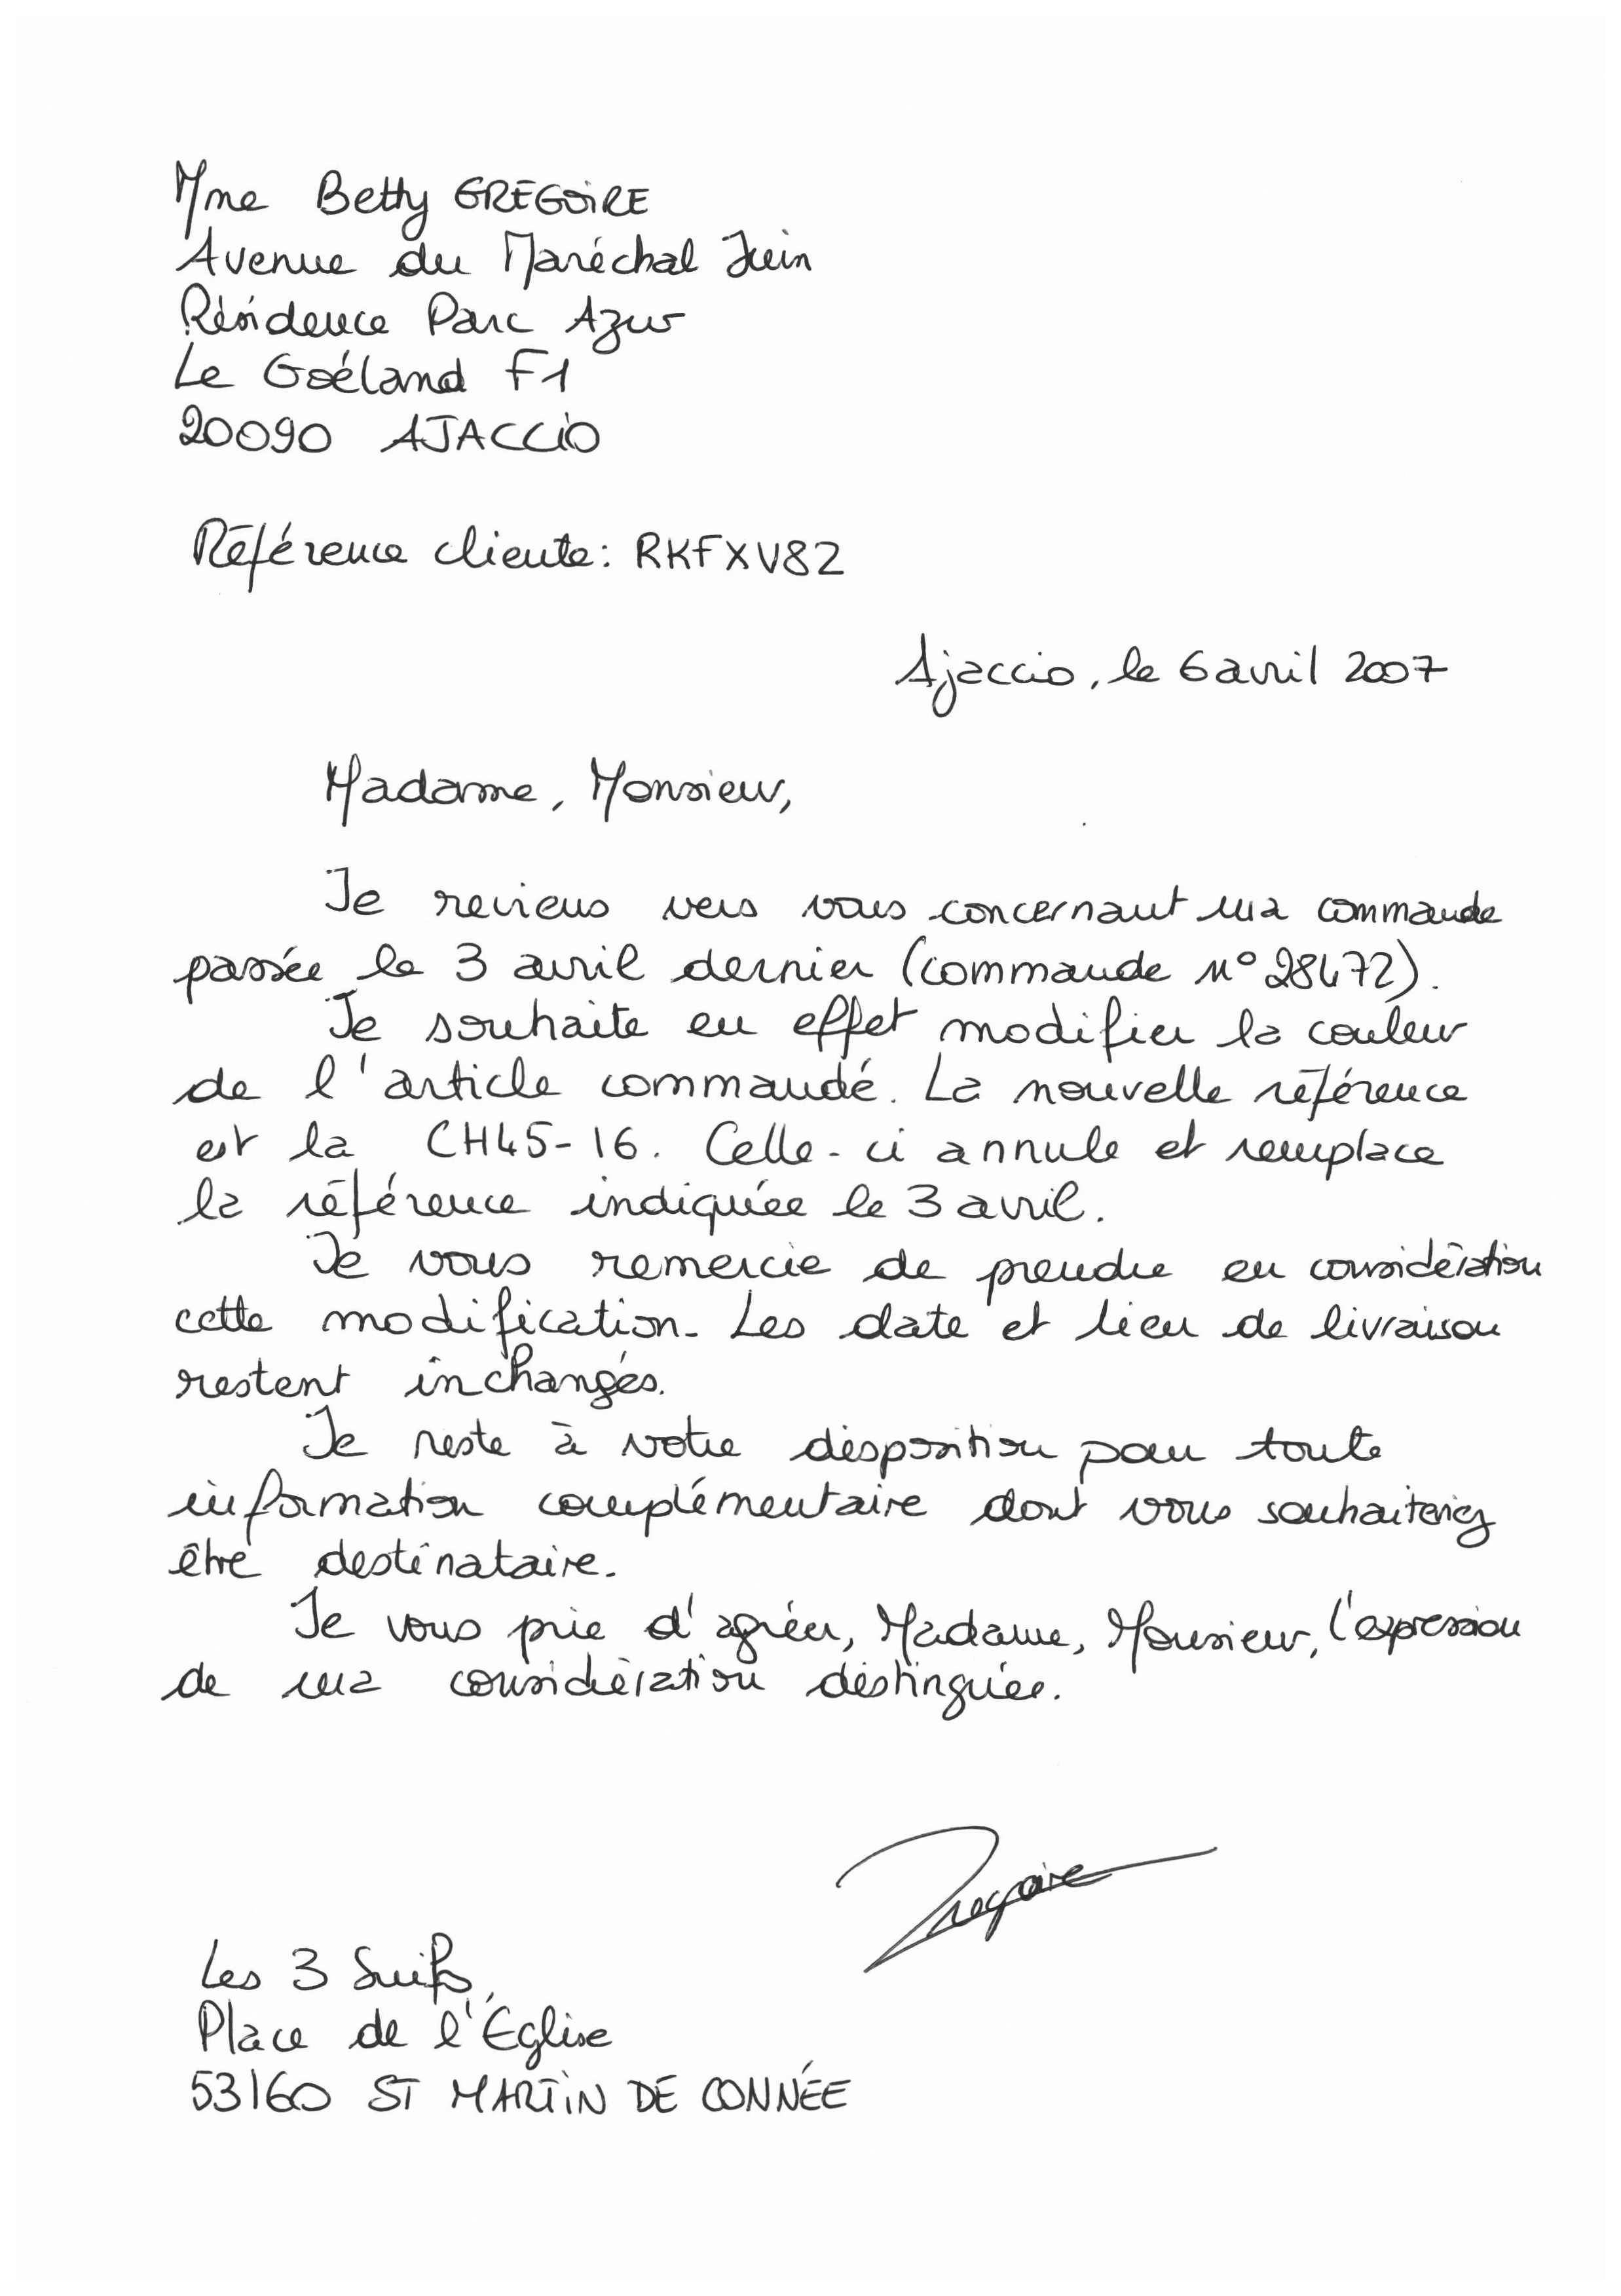 Mme Betty GREGOIRE
Avenue du Maréchal Juin
Résidence Parc Azur
Le Goéland F1
20090 AJACCIO
Référence cliente: RKFXV82
Ajaccio, le 6 avril 2007
Madame, Monsieur,
Je reviens vers vous concernant ma commande
passée le 3 avril dernier (commande n° 28472).
Je souhaite en effet modifier la couleur
de l'article commandé. La nouvelle référence
est la CH45-16. Celle-ci annule et remplace
la référence indiquée le 3 avril.
Je vous remercie de prendre en considération
cette modification. Les date et lieu de livraison
restent inchangés.
Je reste à votre disposition pour toute
information complémentaire dont vous souhaiteriez
être destinataire.
Je vous prie d'agréer, Madame, Monsieur, l'expression
de ma considération distinguée.
Gregoire
Les 3 Suifs
Place de l'Église
53160 ST MARTIN DE CONNÉE